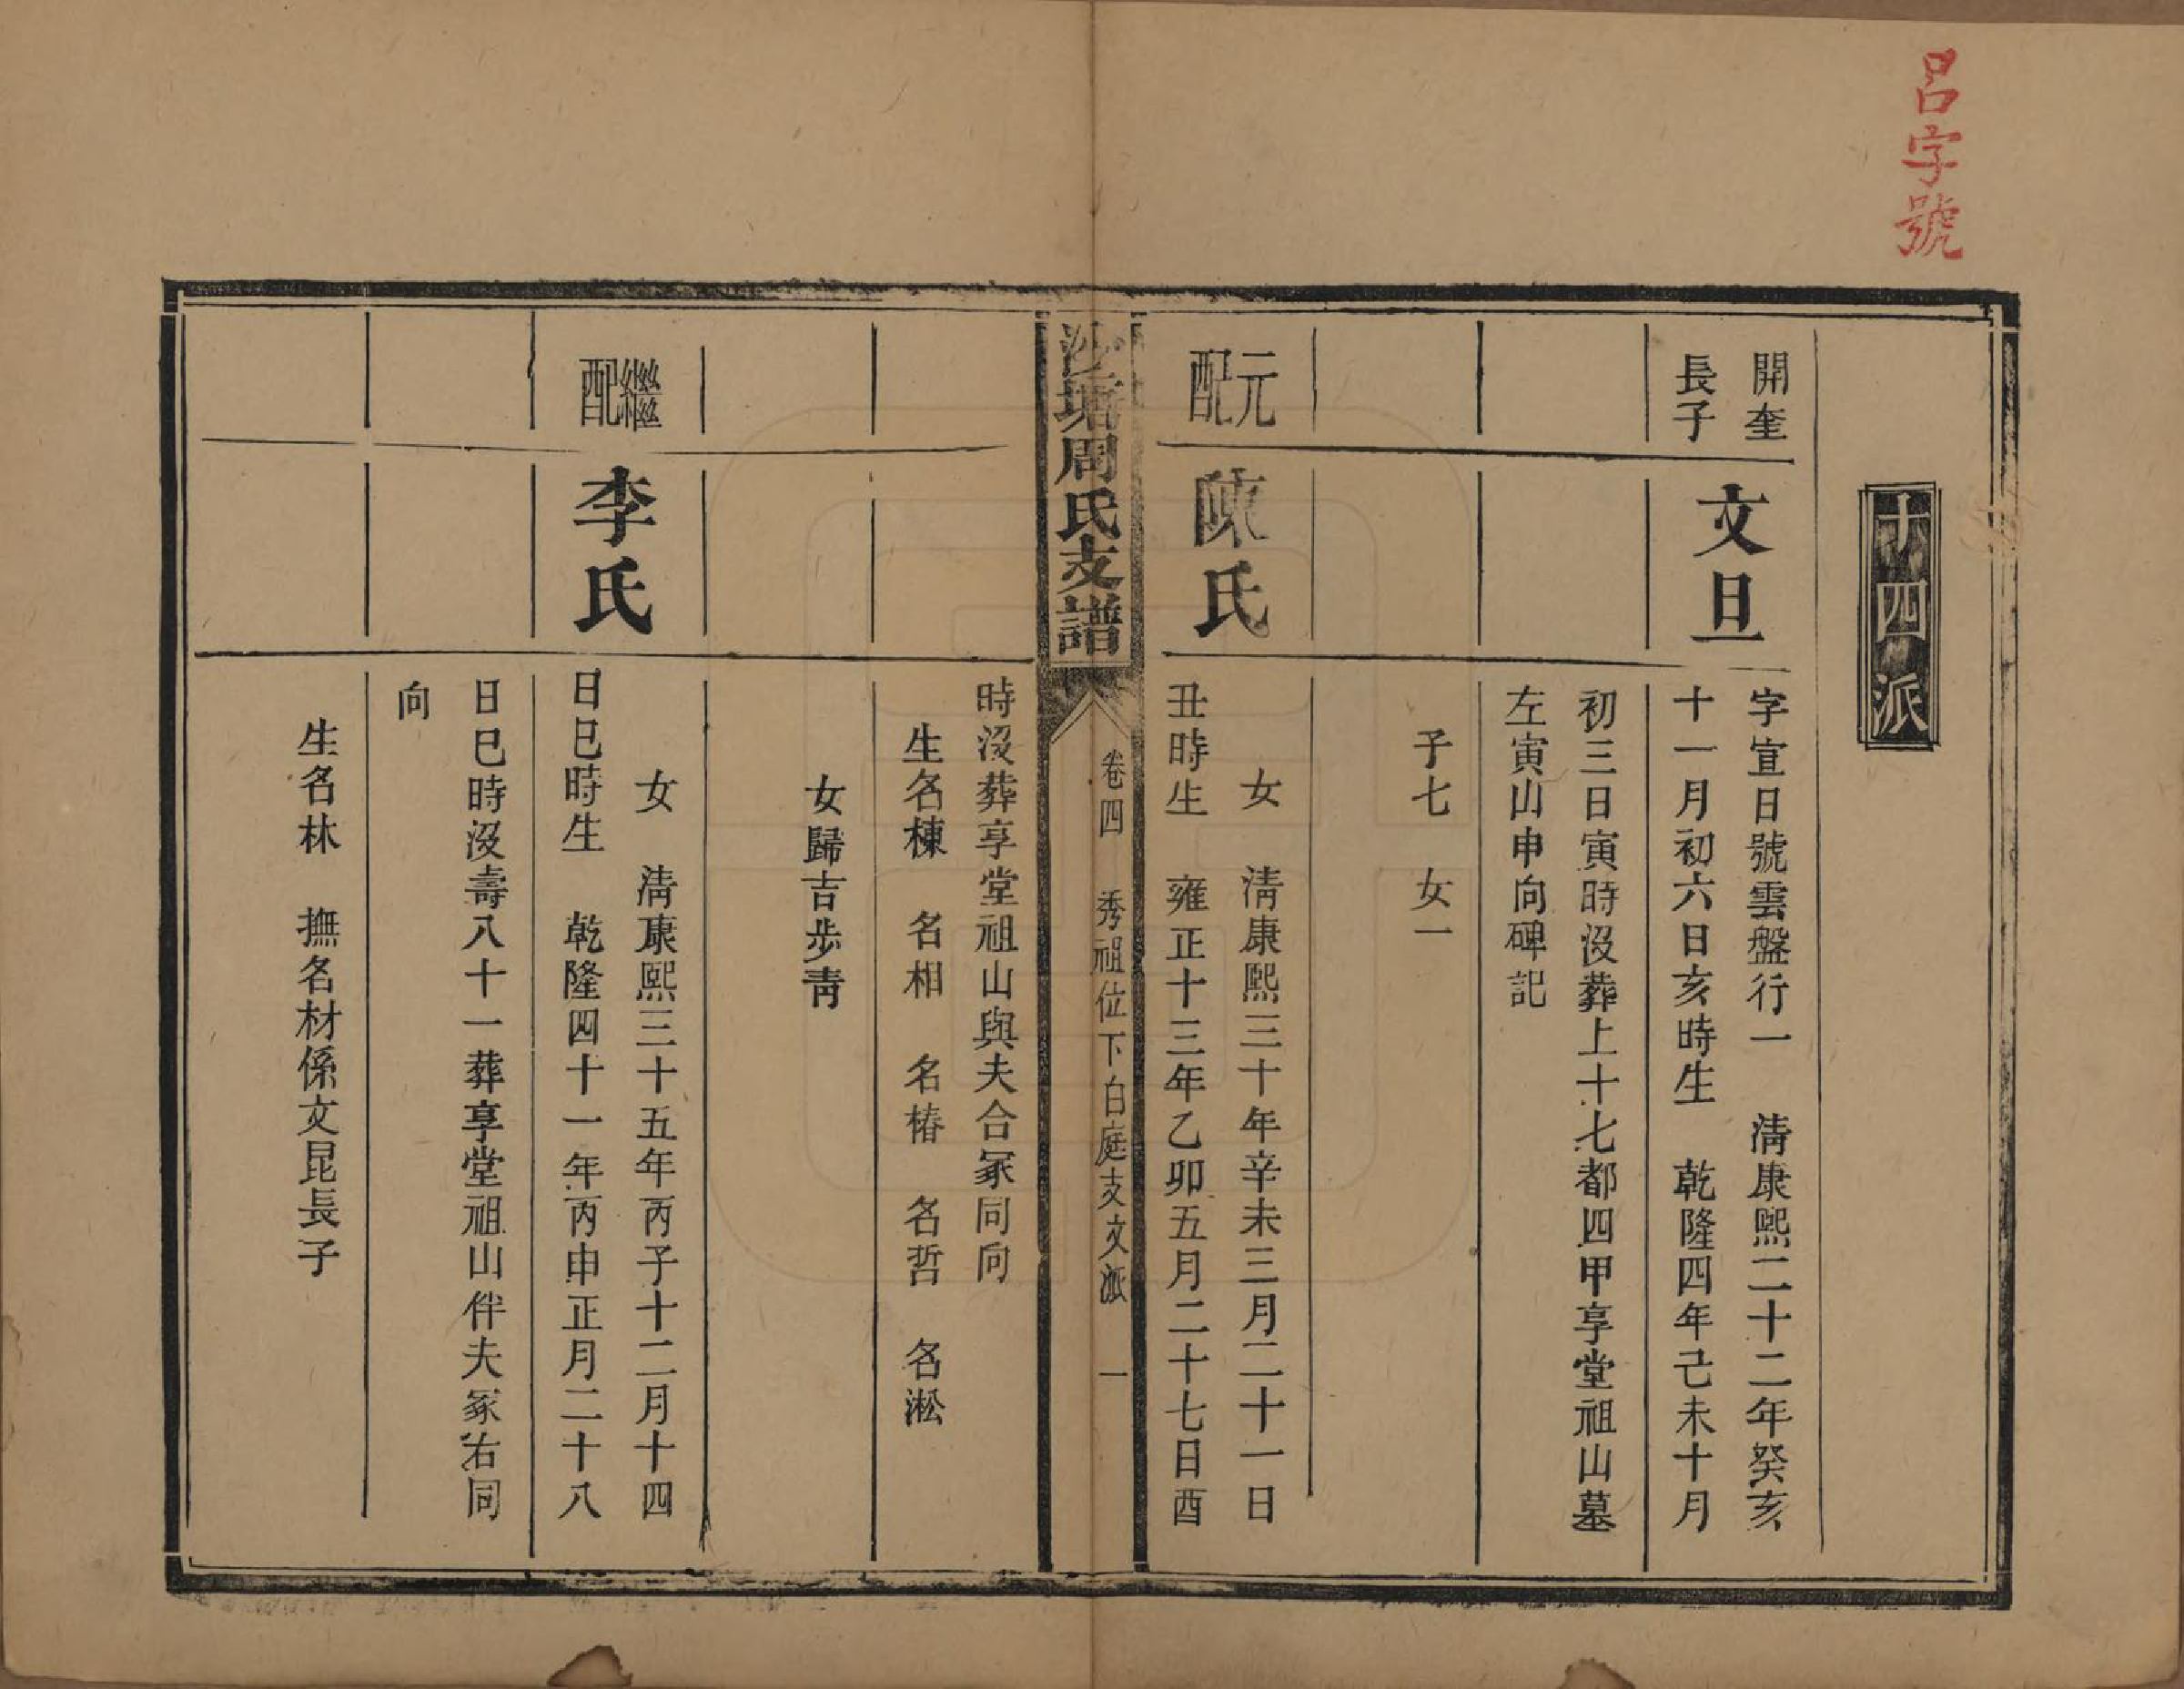 呂字號
十四派
開奎
長子
文旦
字宣日號雲盤行一 清康熙二十二年癸亥
十一月初六日亥時生 乾隆四年己未十月
初三日寅時沒葬上十七都四甲享堂祖山墓
左寅山申向碑記
子七 女一
元配
陳氏
女 清康熙三十年辛未三月二十一日
丑時生 雍正十三年乙卯五月二十七日酉
沙塘周氏支譜
卷四 秀祖位下白庭支文派 一
時沒葬享堂祖山與夫合冢同向
生名棟 名相 名椿 名哲 名淞
女歸吉步靑
繼配
李氏
女 清康熙三十五年丙子十二月十四
日巳時生 乾隆四十一年丙申正月二十八
日巳時沒壽八十一葬享堂祖山伴夫冢右同
向
生名林 撫名材係文昆長子